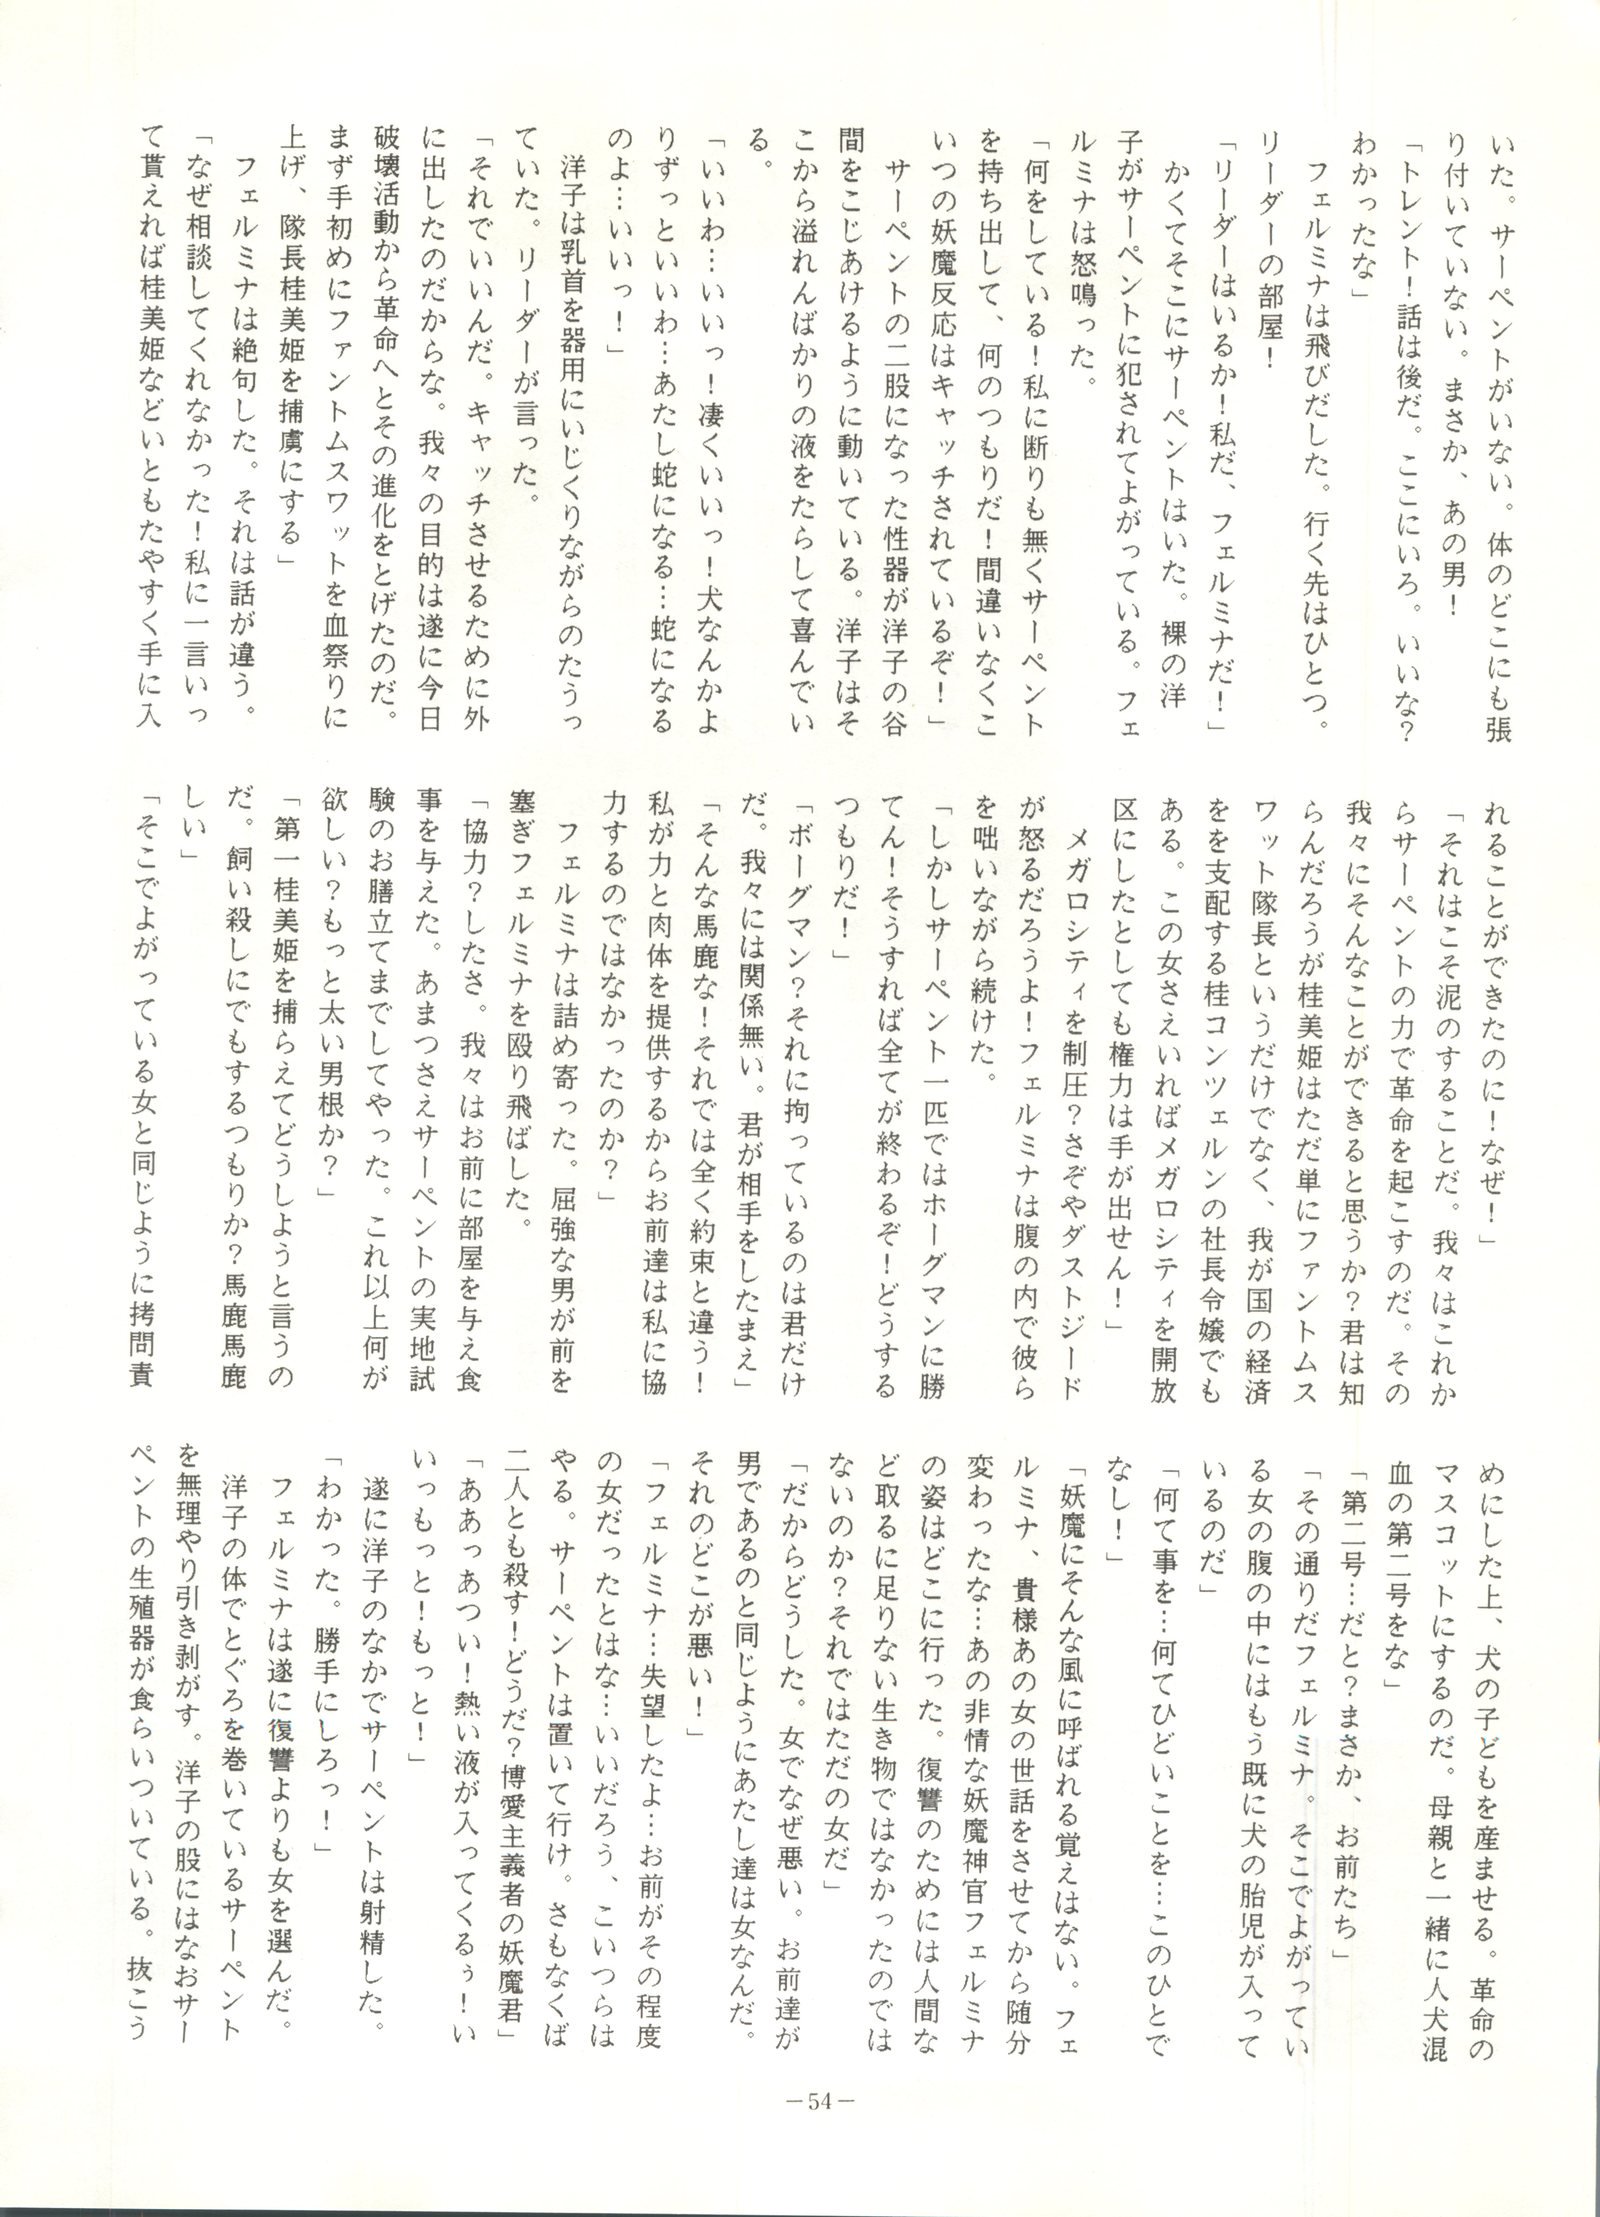 いた。サーペントがいない。体のどこにも張
り付いていない。まさか、あの男！
「トレント！話は後だ。ここにいろ。いいな？
わかったな」
　フェルミナは飛びだした。行く先はひとつ。
リーダーの部屋！
「リーダーはいるか！私だ、フェルミナだ！」
　かくてそこにサーペントはいた。裸の洋
子がサーペントに犯されてよがっている。フェ
ルミナは怒鳴った。
「何をしている！私に断りも無くサーペント
を持ち出して、何のつもりだ！間違いなくこ
いつの妖魔反応はキャッチされているぞ！」
　サーペントの二股になった性器が洋子の谷
間をこじあけるように動いている。洋子はそ
こから溢れんばかりの液をたらして喜んでい
る。
「いいわ…いいっ！凄くいいっ！犬なんかよ
りずっといいわ…あたし蛇になる…蛇になる
のよ…いいっ！」
　洋子は乳首を器用にいじくりながらのたうっ
ていた。リーダーが言った。
「それでいいんだ。キャッチさせるために外
に出したのだからな。我々の目的は遂に今日
破壊活動から革命へとその進化をとげたのだ。
まず手初めにファントムスワットを血祭りに
上げ、隊長桂美姫を捕虜にする」
　フェルミナは絶句した。それは話が違う。
「なぜ相談してくれなかった！私に一言いっ
て貰えれば桂美姫などいともたやすく手に入
れることができたのに！なぜ！」
「それはこそ泥のすることだ。我々はこれか
らサーペントの力で革命を起こすのだ。その
我々にそんなことができると思うか？君は知
らんだろうが桂美姫はただ単にファントムス
ワット隊長というだけでなく、我が国の経済
をを支配する桂コンツェルンの社長令嬢でも
ある。この女さえいればメガロシティを開放
区にしたとしても権力は手が出せん！」
　メガロシティを制圧？さぞやダストジード
が怒るだろうよ！フェルミナは腹の内で彼ら
を咄いながら続けた。
「しかしサーペント一匹ではホーグマンに勝
てん！そうすれば全てが終わるぞ！どうする
つもりだ！」
「ボーグマン？それに拘っているのは君だけ
だ。我々には関係無い。君が相手をしたまえ」
「そんな馬鹿な！それでは全く約束と違う！
私が力と肉体を提供するからお前達は私に協
力するのではなかったのか？」
　フェルミナは詰め寄った。屈強な男が前を
塞ぎフェルミナを殴り飛ばした。
「協力？したさ。我々はお前に部屋を与え食
事を与えた。あまつさえサーペントの実地試
験のお膳立てまでしてやった。これ以上何が
欲しい？もっと太い男根か？」
「第一桂美姫を捕らえてどうしようと言うの
だ。飼い殺しにでもするつもりか？馬鹿馬鹿
しい」
「そこでよがっている女と同じように拷問責
めにした上、犬の子どもを産ませる。革命の
マスコットにするのだ。母親と一緒に人犬混
血の第二号をな」
「第二号…だと？まさか、お前たち」
「その通りだフェルミナ。そこでよがってい
る女の腹の中にはもう既に犬の胎児が入って
いるのだ」
「何て事を…何てひどいことを…このひとで
なし！」
「妖魔にそんな風に呼ばれる覚えはない。フェ
ルミナ、貴様あの女の世話をさせてから随分
変わったな…あの非情な妖魔神官フェルミナ
の姿はどこに行った。復讐のためには人間な
ど取るに足りない生き物ではなかったのでは
ないのか？それではただの女だ」
「だからどうした。女でなぜ悪い。お前達が
男であるのと同じようにあたし達は女なんだ。
それのどこが悪い！」
「フェルミナ…失望したよ…お前がその程度
の女だったとはな…いいだろう、こいつらは
やる。サーペントは置いて行け。さもなくば
二人とも殺す！どうだ？博愛主義者の妖魔君」
「ああっあつい！熱い液が入ってくるぅ！い
いっもっと！もっと！」
　遂に洋子のなかでサーペントは射精した。
「わかった。勝手にしろっ！」
　フェルミナは遂に復讐よりも女を選んだ。
　洋子の体でとぐろを巻いているサーペント
を無理やり引き剥がす。洋子の股にはなおサー
ペントの生殖器が食らいついている。抜こう
－54－